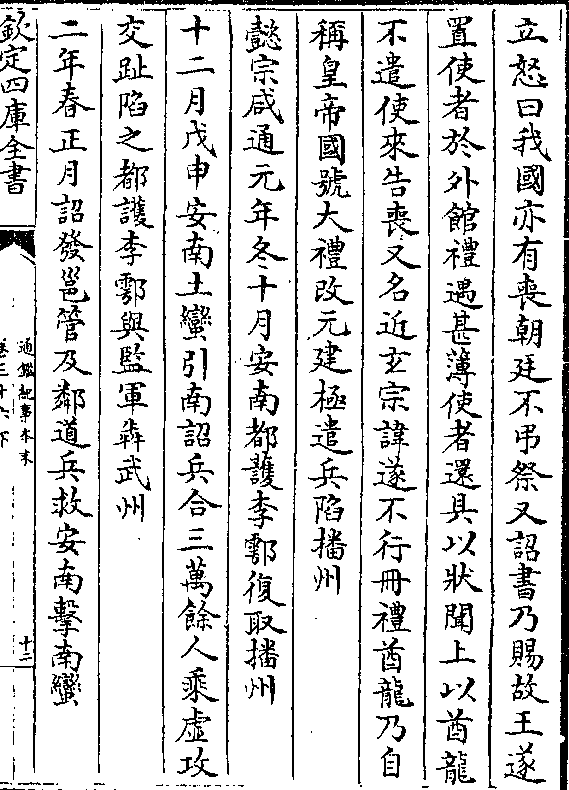 立怒曰我國亦有喪朝廷不弔祭又詔書乃賜故王遂
置使者於外館禮遇甚薄使者還具以狀聞上以酋龍
不遣使來告喪又名近玄宗諱遂不行冊禮酋龍乃自
稱皇帝國號大禮改元建極遣兵陷播州
懿宗咸通元年冬十月安南都護李鄠復取播州
十二月戊申安南土蠻引南詔兵合三萬餘人乘虛攻
交趾陷之都護李鄠與監軍犇武州
二年春正月詔發邕管及鄰道兵救安南擊南蠻
欽定四庫全書
通鑑紀事本末
卷三十六下
十二